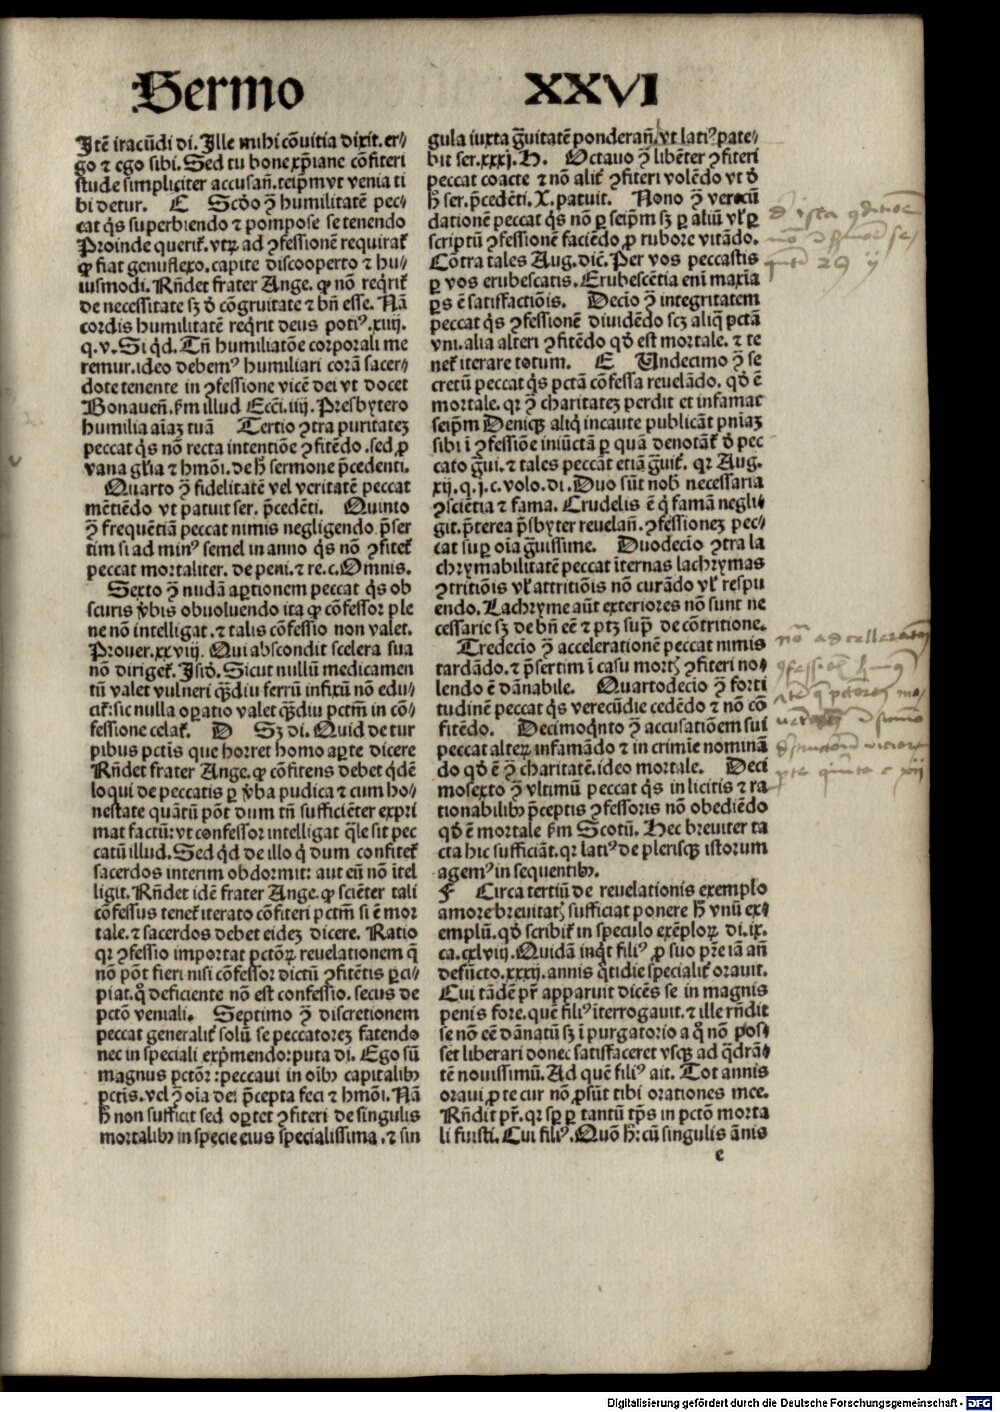 Sermo XXVI
Itē iracūdi di. Ille mihi cōuitia dixit. er⸗
go ⁊ ego sibi. Sed tu bone xp̄iane cōfiteri
stude simpliciter accusañ. teip̄m vt venia ti
bi detur. C Scd̓o ꝯ̄ humilitatē pec⸗
cat q̄s superbiendo ⁊ pompose se tenendo
Proinde querit̃. vtꝝ ad ꝯfessionē requirat̃
ꝙ fiat genuflexo. capite discooperto ⁊ hu⸗
iusmodi. Rn̄det frater Ange. ꝙ nō req̄rit̃
de necessitate sꝫ d̓ cōgruitate ⁊ bn̄ esse. Nā
cordis humilitatē req̄rit deus potiꝰ. xiiij.
q. v. Si q̄d. Tn̄ humiliatiōe corporali me
remur. ideo debemꝰ humiliari corā sacer⸗
dote tenente in ꝯfessione vicē dei vt docet
Bonaueñ. ẜm illud Ecci. iiij. Presbytero
humilia aīaꝫ tuā Tertio ꝯtra puritateꝫ
peccat q̄s nō recta intentiōe ꝯfitēdo. sed ꝓ
vana gl̓ia ⁊ hmōi. de h̄ sermone p̄cedenti.
Quarto ꝯ̄ fidelitatē vel veritatē peccat
mētiēdo vt patuit ser. p̄cedēti. Quinto
ꝯ̄ frequētiā peccat nimis negligendo p̄ser
tim si ad minꝰ semel in anno q̄s nō ꝯfitet̃
peccat mortaliter. de peni. ⁊ re. c. Omnis.
Sexto ꝯ̄ nudā aꝑtionem peccat q̄s ob
scuris v̓bis obuoluendo ita ꝙ cōfessor ple
ne nō intelligat. ⁊ talis cōfessio non valet.
Prouer. xxviij. Qui abscondit scelera sua
nō diriget̃. Isid̓o. Sicut nullū medicamen
tū valet vulneri q̄ꝫdiu ferrū infixū nō edu⸗
cit̃: sic nulla oꝑatio valet q̄ꝫdiu pctm̄ in cō⸗
fessione celat̃. D Sꝫ di. Quid de tur
pibus pctīs que horret homo aꝑte dicere
Rn̄det frater Ange. ꝙ cōfitens debet q̄dē
loqui de peccatis ꝑ v̓ba pudica ⁊ cum ho⸗
nestate quātū pōt dum tn̄ sufficiēter expri
mat factū: vt confessor intelligat q̄le sit pec
catū illud. Sed q̄d de illo q̄ dum confitet̃
sacerdos interim obdormit: aut eū nō ītel
ligit. Rn̄det idē frater Ange. ꝙ sciēter tali
cōfessus tenet̃ iterato cōfiteri pctm̄ si ē mor
tale. ⁊ sacerdos debet eideꝫ dicere. Ratio
qr ꝯfessio importat pctōꝝ reuelationem q̄
nō pōt fieri nisi cōfessor dictū ꝯfitētis ꝑci⸗
piat. q̊ deficiente nō est confessio. secus de
pctō veniali. Septimo ꝯ̄ discretionem
peccat generalit̃ solū se peccatoreꝫ fatendo
nec in speciali exp̄mendo: puta di. Ego sū
magnus pctōr: peccaui in oībꝫ capitalibꝫ
pctīs. vel ꝯ̄ oīa dei p̄cepta feci ⁊ hmōi. Nā
h̄ non sufficit sed oꝑtet ꝯfiteri de singulis
mortalibꝫ in specie eius specialissima. ⁊ sin
gula iuxta g̊uitatē ponderañ. vt latiꝰ pate⸗
bit ser. xxxj. H. Octauo ꝯ̄ libēter ꝯfiteri
peccat coacte ⁊ nō alit̃ ꝯfiteri volēdo vt d̓
h̄ ser. p̄cedēti. X. patuit. Nono ꝯ̄ verecū
dationē peccat q̄s nō ꝑ seip̄m sꝫ ꝑ aliū vl̓ ꝑ
scriptū ꝯfessionē faciēdo ꝓ rubore vitādo.
Cōtra tales Aug. diē. Per vos peccastis
ꝑ vos erubescatis. Erubescētia enī maxīa
ꝑs ē satisfactiōis. Decīo ꝯ̄ integritatem
peccat q̄s ꝯfessionē diuidēdo scꝫ aliq̄ pctā
vni. alia alteri ꝯfitēdo qd̓ est mortale. ⁊ te
net̃ iterare totum. E Undecimo ꝯ̄ se
cretū peccat q̄s pctā cōfessa reuelādo. qd̓ ē
mortale. qr ꝯ̄ charitateꝫ perdit et infamat
seip̄m Deniqꝫ aliq̄ incaute publicāt pn̄iaꝫ
sibi ī ꝯfessiōe iniūctā ꝑ quā denotāt̃ d̓ pec
cato g̊ui. ⁊ tales peccāt etiā g̊uit̃. qr Aug.
xij. q. j. c. volo. di. Duo sūt nob̄ necessaria
ꝯsciētia ⁊ fama. Crudelis ē q̄ famā negli⸗
git. p̄terea p̄sbyter reuelañ. ꝯfessioneꝫ pec⸗
cat suꝑ oīa g̊uissime. Duodecīo ꝯtra la
chrymabilitatē peccat īternas lachrymas
ꝯtritiōis vl̓ attritiōis nō curādo vl̓ respu
endo. Lachryme aūt exteriores nō sunt ne
cessarie sꝫ de bn̄ eē ⁊ ptꝫ sup̄ de cōtritione.
Tredecīo ꝯ̄ accelerationē peccat nimis
tardādo. ⁊ p̄sertim ī casu mortꝭ ꝯfiteri no⸗
lendo ē dānabile. Quartodecīo ꝯ̄ forti
tudinē peccat q̄s verecūdie cedēdo ⁊ nō cō
fitēdo. Decimoq̄nto ꝯ̄ accusatiōem sui
peccat alteꝝ infamādo ⁊ in crimīe nominā
do qd̓ ē ꝯ̄ charitatē. ideo mortale. Deci
mosexto ꝯ̄ vltimū peccat q̄s in licitis ⁊ ra
tionabilibꝫ p̄ceptis ꝯfessoris nō obediēdo
qd̓ ē mortale ẜm Scotū. Hec breuiter ta
cta hic sufficiāt. qr latiꝰ de plerisqꝫ istorum
agemꝰ in sequentibꝫ.
F Circa tertiū de reuelationis exemplo
amore breuitatꝭ sufficiat ponere h̄ vnū ex⸗
emplū. qd̓ scribit̃ in speculo exēploꝝ. di. ix.
ca. cxlviij. Quidā inq̄t filiꝰ ꝓ suo pr̄e iā añ
defūcto. xxxij. annis q̄tidie specialit̃ orauit.
Cui tādē pr̄ apparuit dicēs se in magnis
penis fore. quē filiꝰ īterrogauit. ⁊ ille rn̄dit
se nō eē dānatū sꝫ ī purgatorio a q̊ nō pos⸗
set liberari donec satisfaceret vsqꝫ ad q̄drā⸗
tē nouissimū. Ad quē filiꝰ ait. Tot annis
oraui ꝓ te cur nō ꝓsūt tibi orationes mee.
Rn̄dit pr̄. qr sꝑ ꝑ tantū tp̄s in pctō morta
li fuisti. Cui filiꝰ. Quō h̄: cū singulis ānis
e
Digitalisierung gefördert durch die Deutsche Forschungsgemeinschaft - DFG